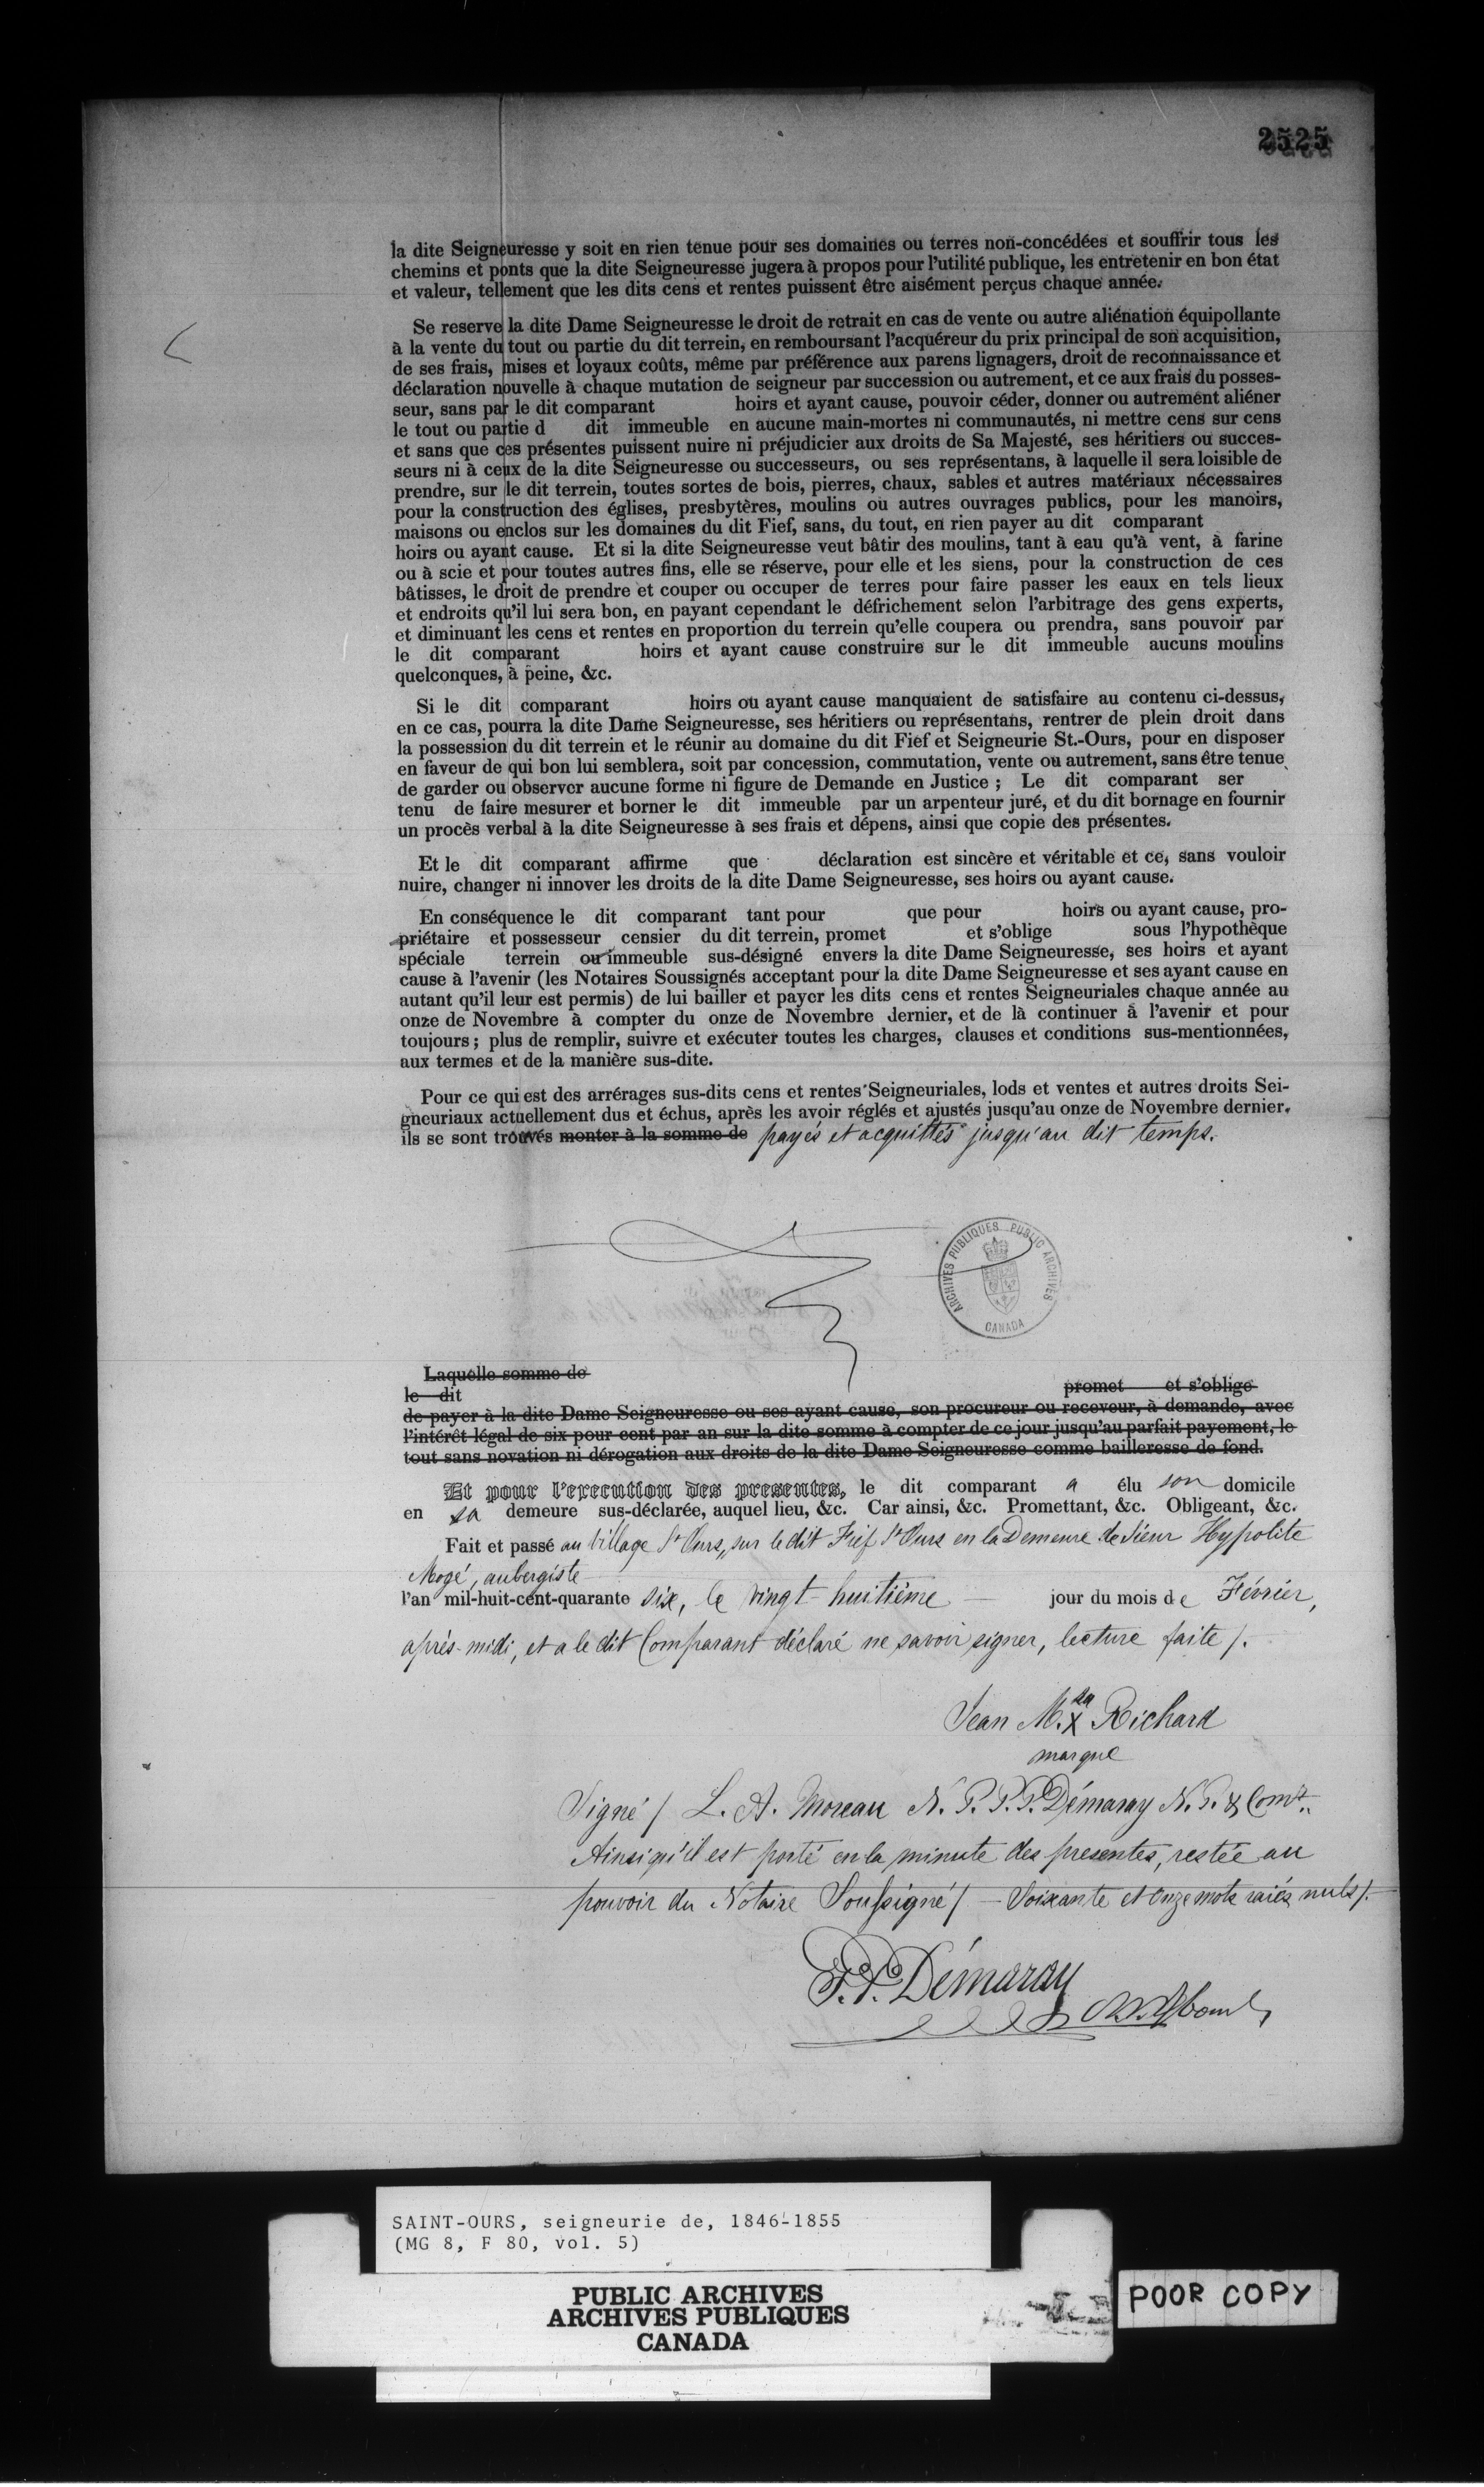 2525
la dite Seigneuresse y soit en rien tenue pour ses domaines ou terres non-concédées et souffrir tous les
chemins et ponts que la dite Seigneuresse jugera à propos pour l'utilité publique, les entretenir en bon état
et valeur, tellement que les dits cens et rentes puissent être aisément perçus chaque année.
Se reserve la dite Dame Seigneuresse le droit de retrait en cas de vente ou autre aliénation équipollante
à la vente du tout ou partie du dit terrein, en remboursant l'acquéreur du prix principal de son acquisition,
de ses frais, mises et loyaux coûts, même par préférence aux parens lignagers, droit de reconnaissance et
déclaration nouvelle à chaque mutation de seigneur par succession ou autrement, et ce aux frais du posses-
seur, sans par le dit comparant hoirs et ayant cause, pouvoir céder, donner ou autrement aliéner
le tout ou partie d dit immeuble en aucune main-mortes ni communautés, ni mettre cens sur cens
et sans que ces présentes puissent nuire ni préjudicier aux droits de Sa Majesté, ses héritiers ou succes-
seurs ni à ceux de la dite Seigneuresse ou successeurs, ou ses représentans, à laquelle il sera loisible de
prendre, sur le dit terrein, toutes sortes de bois, pierres, chaux, sables et autres matériaux nécessaires
pour la construction des églises, presbytères, moulins ou autres ouvrages publics, pour les manoirs,
maisons ou enclos sur les domaines du dit Fief, sans, du tout, en rien payer au dit comparant
hoirs ou ayant cause. Et si la dite Seigneuresse veut bâtir des moulins, tant à eau qu'à vent, à farine
ou à scie et pour toutes autres fins, elle se réserve, pour elle et les siens, pour la construction de ces
bâtisses, le droit de prendre et couper ou occuper de terres pour faire passer les eaux en tels lieux
et endroits qu'il lui sera bon, en payant cependant le défrichement selon l'arbitrage des gens experts,
et diminuant les cens et rentes en proportion du terrein qu'elle coupera ou prendra, sans pouvoir par
le dit comparant hoirs et ayant cause construire sur le dit immeuble aucuns moulins
quelconques, à peine, &c.
Si le dit comparant hoirs ou ayant cause manquaient de satisfaire au contenu ci-dessus,
en ce cas, pourra la dite Dame Seigneuresse, ses héritiers ou représentans, rentrer de plein droit dans
la possession du dit terrein et le réunir au domaine du dit Fief et Seigneurie St.-Ours, pour en disposer
en faveur de qui bon lui semblera, soit par concession, commutation, vente ou autrement, sans être tenue
de garder ou observer aucune forme ni figure de Demande en Justice ; Le dit comparant ser
tenu de faire mesurer et borner le dit immeuble par un arpenteur juré, et du dit bornage en fournir
un procès verbal à la dite Seigneuresse à ses frais et dépens, ainsi que copie des présentes.
Et le dit comparant affirme que déclaration est sincère et véritable et ce, sans vouloir
nuire, changer ni innover les droits de la dite Dame Seigneuresse, ses hoirs ou ayant cause.
En conséquence le dit comparant tant pour que pour hoirs ou ayant cause, pro-
priétaire et possesseur censier du dit terrein, promet et s'oblige sous l'hypothèque
spéciale terrein ou immeuble sus-désigné envers la dite Dame Seigneuresse, ses hoirs et ayant
cause à l'avenir (les Notaires Soussignés acceptant pour la dite Dame Seigneuresse et ses ayant cause en
autant qu'il leur est permis) de lui bailler et payer les dits cens et rentes Seigneuriales chaque année au
onze de Novembre à compter du onze de Novembre dernier, et de là continuer à l'avenir et pour
toujours ; plus de remplir, suivre et exécuter toutes les charges, clauses et conditions sus-mentionnées,
aux termes et de la manière sus-dite.
Pour ce qui est des arrérages sus-dits cens et rentes Seigneuriales, lods et ventes et autres droits Sei-
gneuriaux actuellement dus et échus, après les avoir réglés et ajustés jusqu'au onze de Novembre dernier.
ils se sont trouvés monter à la somme de payés et acquittés jusqu'au dit temps.
ARCHIVES PUBLIQUES PUBLIC ARCHIVES
CANADA
Laquelle somme de
le dit promet et s'oblige
de payer à la dite Dame Seigneuresse ou ses ayant cause, son procureur ou receveur, à demande, avec
l'intérêt légal de six pour cent par an sur la dite somme à compter de ce jour jusqu'au parfait payement, le
tout sans novation ni dérogation aux droits de la dite Dame Seigneuresse comme bailleresse de fond.
Et pour l'execution des presentes, le dit comparant a élu son domicile
en sa demeure sus-déclarée, auquel lieu, &c. Car ainsi, &c. Promettant, &c. Obligeant, &c.
Fait et passé au Village St Ours, sur le dit Fief St Ours en la Demeure de Sieur Hypolite
Mogé, aubergiste
l'an mil-huit-cent-quarante six, le vingt-huitième jour du mois de Février,
après-midi, et a le dit Comparant déclaré ne savoir signer, lecture faite /.
Jean M. sa X Richard
marque
Signé / L. A. Moreau N. P. P. P. Démaray N. P. & Comt.
Ainsi qu'il est porté en la minute des presentes, restée au
pouvoir du Notaire Soussigné / — Soixante et onze mots raiés nuls /.
P. P. Démaray
SAINT-OURS, seigneurie de, 1846-1855
(MG 8, F 80, vol. 5)
PUBLIC ARCHIVES
ARCHIVES PUBLIQUES
CANADA
POOR COPY